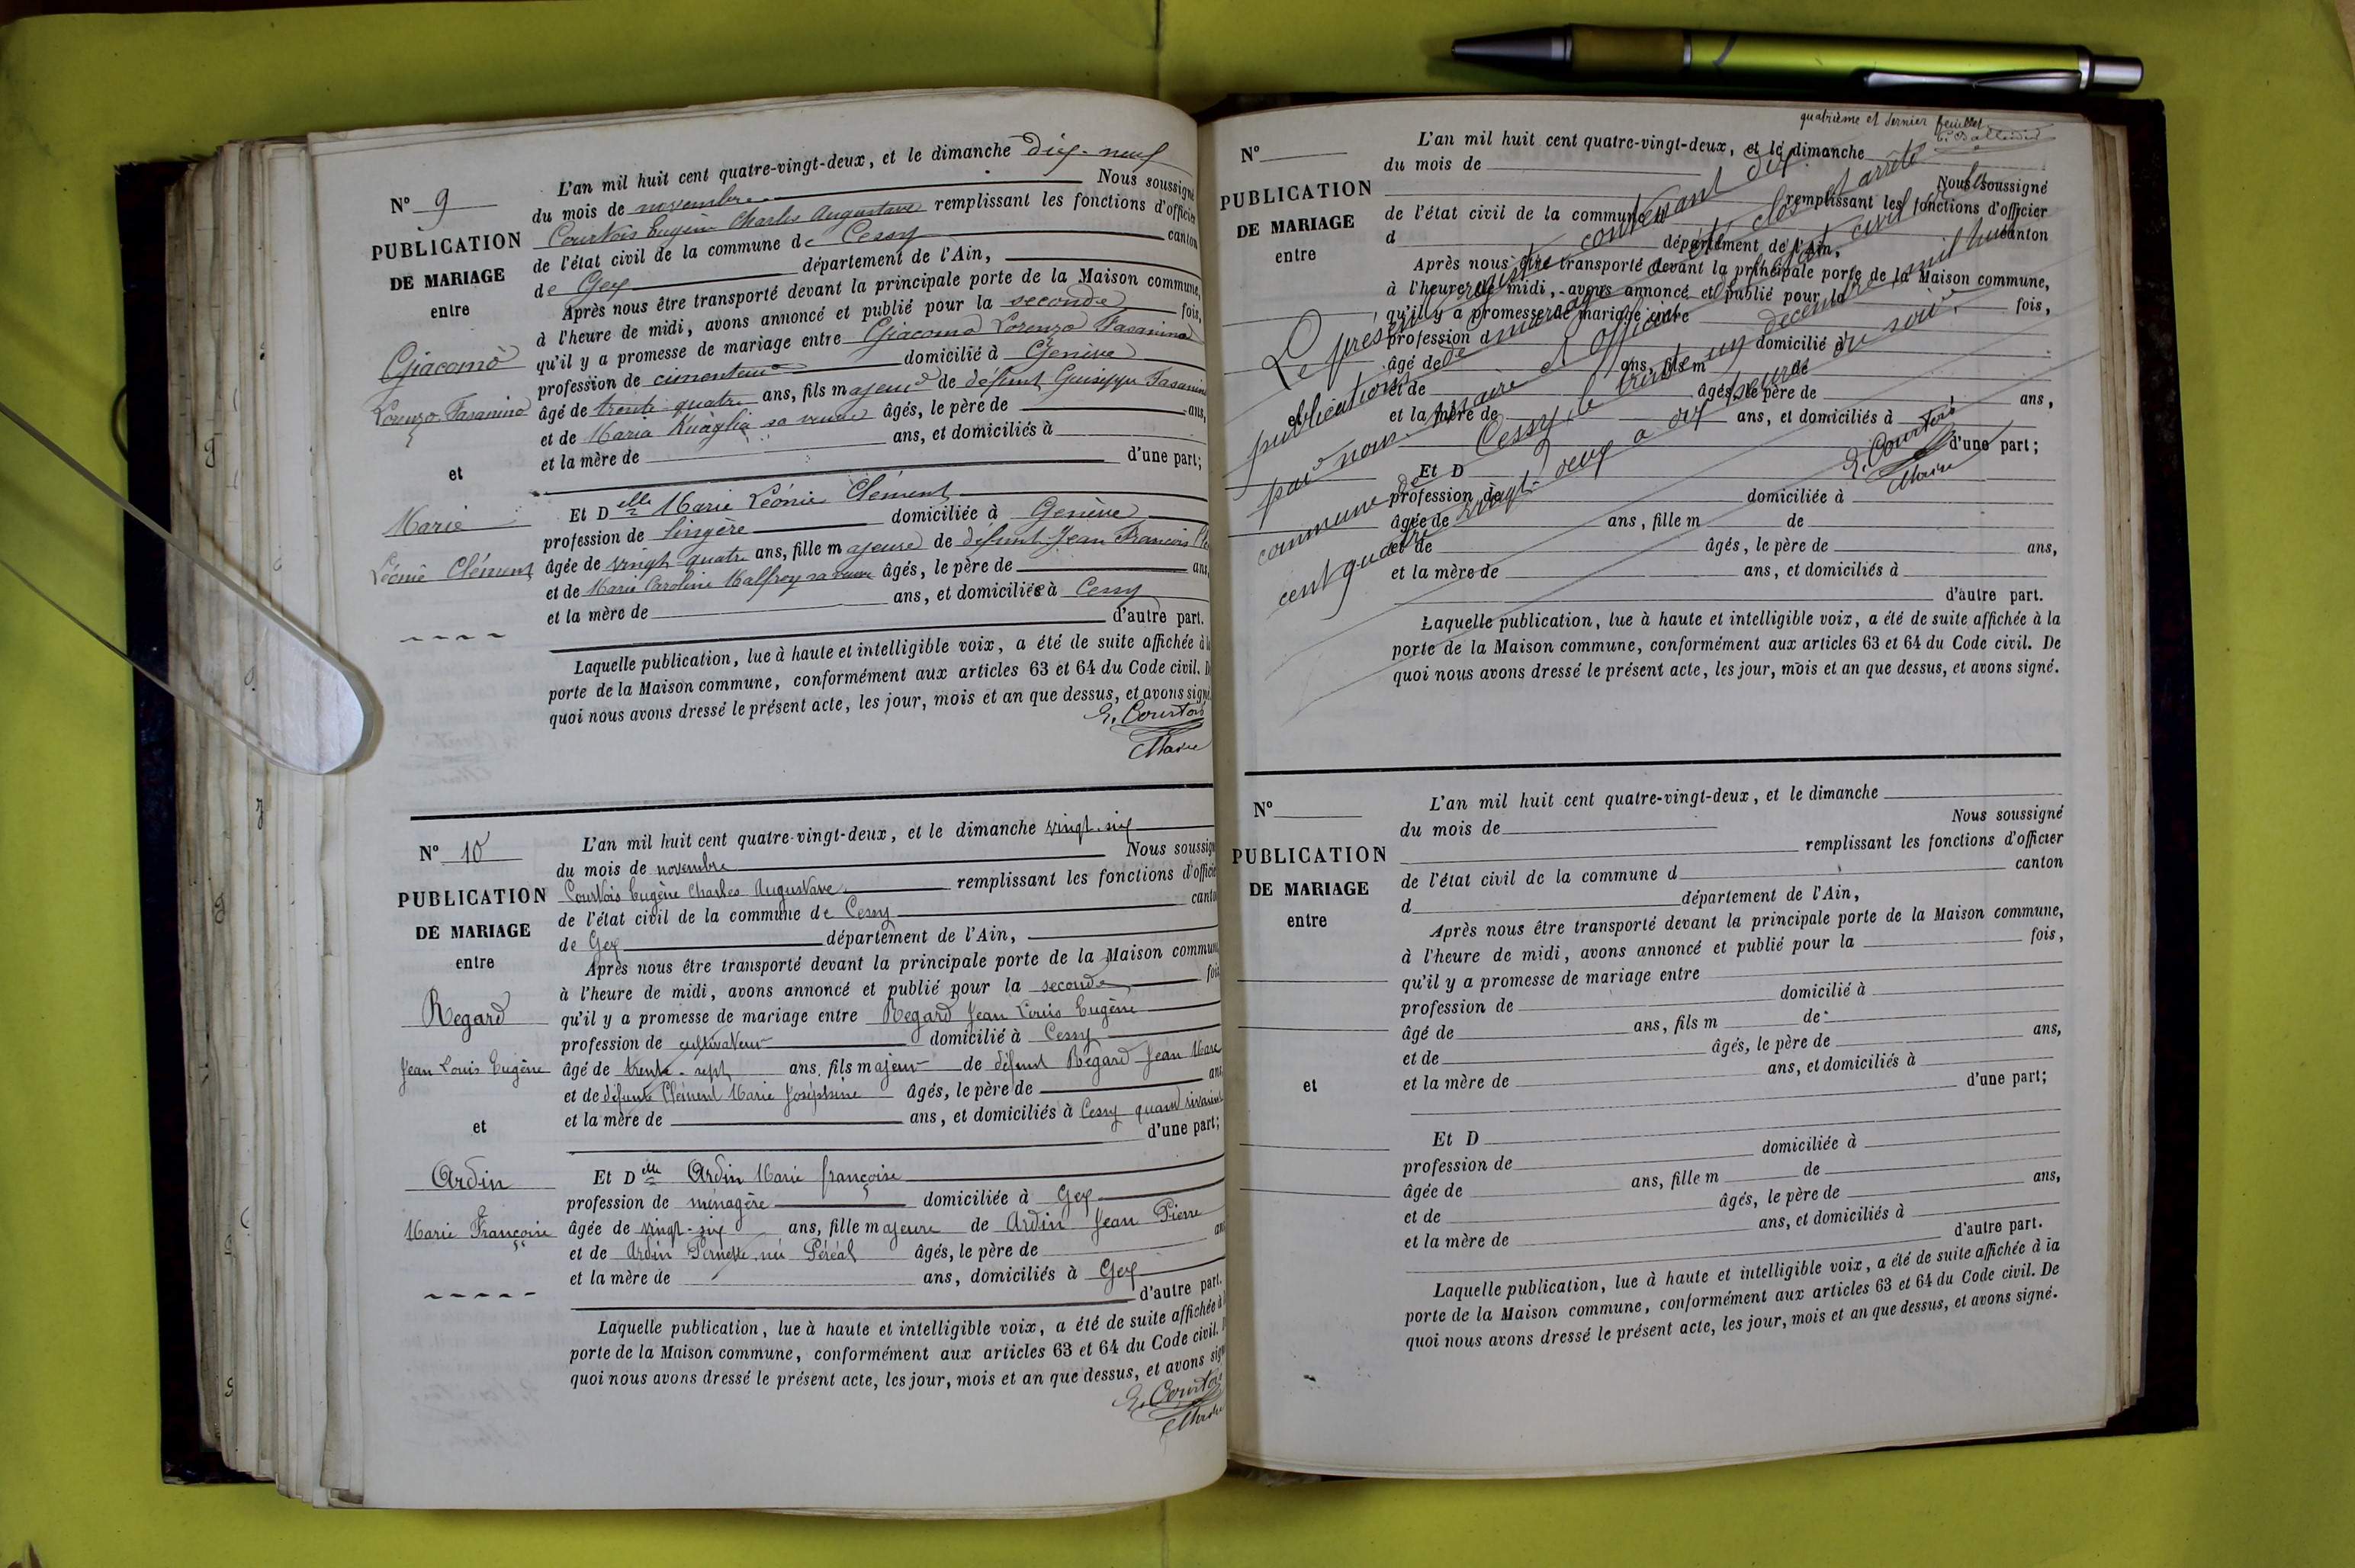 N° 9
PUBLICATION
DE MARIAGE
entre
Giacomo
Lorenzo Fasanino
et
Marie
Léonie Clément
L'an mil huit cent quatre-vingt-deux, et le dimanche dix-neuf
du mois de novembre Nous soussigné
Courtois Eugène Charles Augustave remplissant les fonctions d'officier
de l'état civil de la commune de Cessy canton
de Gex département de l'Ain,
Après nous être transporté devant la principale porte de la Maison commune,
à l'heure de midi, avons annoncé et publié pour la seconde fois,
qu'il y a promesse de mariage entre Giacomo Lorenzo Fasanino
profession de cimenteur domicilié à Genève
âgé de trente-quatre ans, fils majeur de défunt Guiseppe Fasanino
et de Maria sa veuve âgés, le père de ans,
et la mère de ans, et domiciliés à
d'une part;
Et Delle Marie Léonie Clément
profession de lingère domiciliée à Genève
âgée de vingt quatre ans, fille majeure de défunt Jean François Clé
et de Marie Caroline Malfroy sa veuve âgés, le père de ans
et la mère de ans, et domiciliée à Cessy
d'autre part.
Laquelle publication, lue à haute et intelligible voix, a été de suite affichée à la
porte de la Maison commune, conformément aux articles 63 et 64 du Code civil. D
quoi nous avons dressé le présent acte, les jour, mois et an que dessus, et avons signé
E. Courtois
Maire
N° 10
PUBLICATION
DE MARIAGE
entre
Regard
Jean Louis Eugène
et
Ardin
Marie Françoise
L'an mil huit cent quatre-vingt-deux, et le dimanche vingt-six
du mois de novembre Nous soussign
Courtois Eugène Charles Augustave remplissant les fonctions d'officie
de l'état civil de la commune de Cessy canto
de Gex département de l'Ain,
Après nous être transporté devant la principale porte de la Maison commun
à l'heure de midi, avons annoncé et publié pour la seconde foi
qu'il y a promesse de mariage entre Regard Jean Louis Eugène
profession de cultivateur domicilié à Cessy
âgé de trente-sept ans, fils majeur de défunt Regard Jean Marc
et de défunte Clément Marie Joséphine âgés, le père de ans
et la mère de ans, et domiciliés à Cessy quand vivaient
d'une part;
Et Delle Ardin Marie françoise
profession de ménagère domiciliée à Gex
âgée de vingt-six ans, fille majeure de Ardin Jean Pierre
et de Ardin Pernette née Péréal âgés, le père de an
et la mère de ans, domiciliés à Gex
d'autre part.
Laquelle publication, lue à haute et intelligible voix, a été de suite affichée à
porte de la Maison commune, conformément aux articles 63 et 64 du Code civil.
quoi nous avons dressé le présent acte, les jour, mois et an que dessus, et avons sign
E. Courtois
Maire
quatrième et dernier feuillet
N°
PUBLICATION
DE MARIAGE
entre
et
L'an mil huit cent quatre-vingt-deux, et le dimanche
du mois de Nous soussigné
remplissant les fonctions d'officier
de l'état civil de la commune d canton
d département de l'Ain,
Après nous être transporté devant la principale porte de la Maison commune,
à l'heure de midi, avons annoncé et publié pour la fois,
qu'il y a promesse de mariage entre
profession d domicilié à
âgé de ans, fils m de
et de âgés, le père de ans,
et la mère de ans, et domiciliés à
d'une part;
Et D
profession de domiciliée à
âgée de ans, fille m de
et de âgés, le père de ans,
et la mère de ans, et domiciliés à
d'autre part.
Laquelle publication, lue à haute et intelligible voix, a été de suite affichée à la
porte de la Maison commune, conformément aux articles 63 et 64 du Code civil. De
quoi nous avons dressé le présent acte, les jour, mois et an que dessus, et avons signé.
Le présent registre contenant dix
publications de mariage a été clos et arrêté
par nous maire et officier de l'état civil de la
commune de Cessy, le trente un décembre mil huit
cent quatre vingt-deux à six heures du soir.
E. Courtois
Maire
N°
PUBLICATION
DE MARIAGE
entre
et
L'an mil huit cent quatre-vingt-deux, et le dimanche
du mois de Nous soussigné
remplissant les fonctions d'officier
de l'état civil de la commune d canton
d département de l'Ain,
Après nous être transporté devant la principale porte de la Maison commune,
à l'heure de midi, avons annoncé et publié pour la fois,
qu'il y a promesse de mariage entre
profession de domicilié à
âgé de ans, fils m de
et de âgés, le père de ans,
et la mère de ans, et domiciliés à
d'une part;
Et D
profession de domiciliée à
âgée de ans, fille m de
et de âgés, le père de ans,
et la mère de ans, et domiciliés à
d'autre part.
Laquelle publication, lue à haute et intelligible voix, a été de suite affichée à la
porte de la Maison commune, conformément aux articles 63 et 64 du Code civil. De
quoi nous avons dressé le présent acte, les jour, mois et an que dessus, et avons signé.